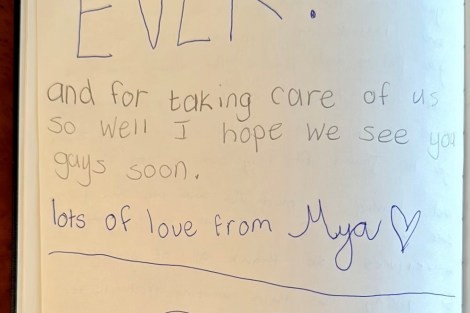 EVER!
and for taking care of us
so well I hope we see you
guys soon.
lots of love from Mya